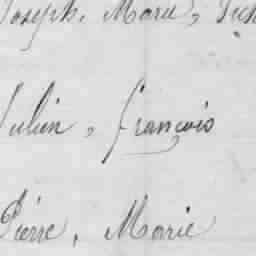 Joseph, Marie,
Julien, François
Pierre, Marie